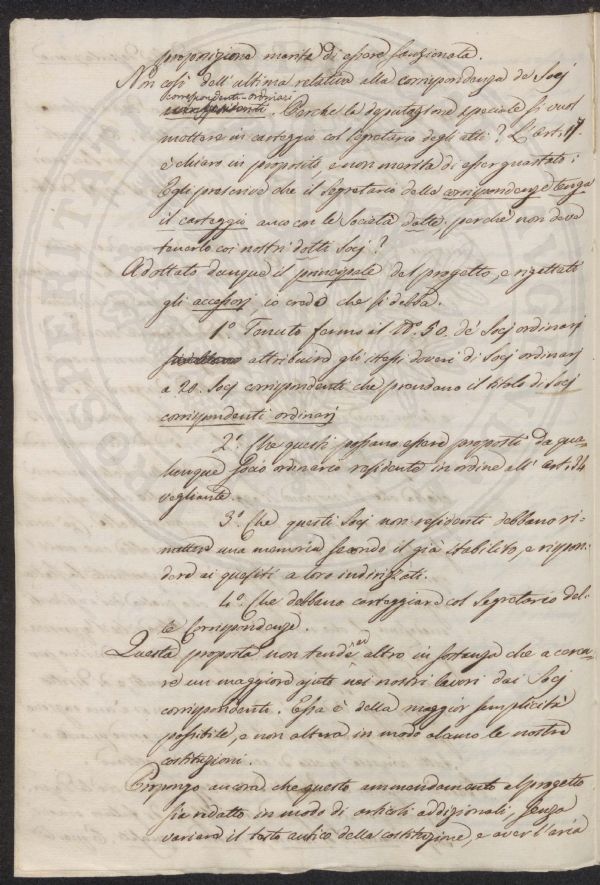 proposizione merita di essere sanzionata.
Non così dell'ultima relativa alla corrispondenza de Socj
correspondenti-ordinarj
. Perchè la deputazione speciale si vuol
mettere in carteggio col segretario degli atti? L'art. 17
è chiaro in proposito, e non merita di esser guastato:
Egli prescrive che il Segretario della corrispondenza tenga
il carteggio anco con le Società dotte, perchè non deve
tenerlo coi nostri dotti Socj?
Adottato dunque il principale del progetto, e rigettati
gli accessorj io credo che si debba.
1.º Tenuto fermo il N.º 50. de' Socj ordinarj
attribuire gli stessi doveri di Socj ordinarj
a 20. Socj corrispondenti che prendano il titolo di Socj
corrispondenti ordinarj
2.º Che questi possano essere proposti da qua-
lunque Socio ordinario residente in ordine all' Art. 24
vegliante.
3.º Che questi Socj non residenti debbano ri-
mettere una memoria secondo il già stabilito, e rispon-
dere ai quesiti a loro indirizzati.
4.º Che debbano carteggiare col Segretario del-
le Corrispondenze.
Questa proposta non tende ad altro in sostanza che a cerca-
re un maggiore ajuto nei nostri lavori dai Socj
corrispondenti. Essa è della maggior semplicità
possibile, e non altera in modo alcuno le nostre
costituzioni.
Propongo ancora che questo ammendamento al progetto
sia redatto in modo di articoli addizionali, senza
variare il testo antico della costituzione, e aver l'aria